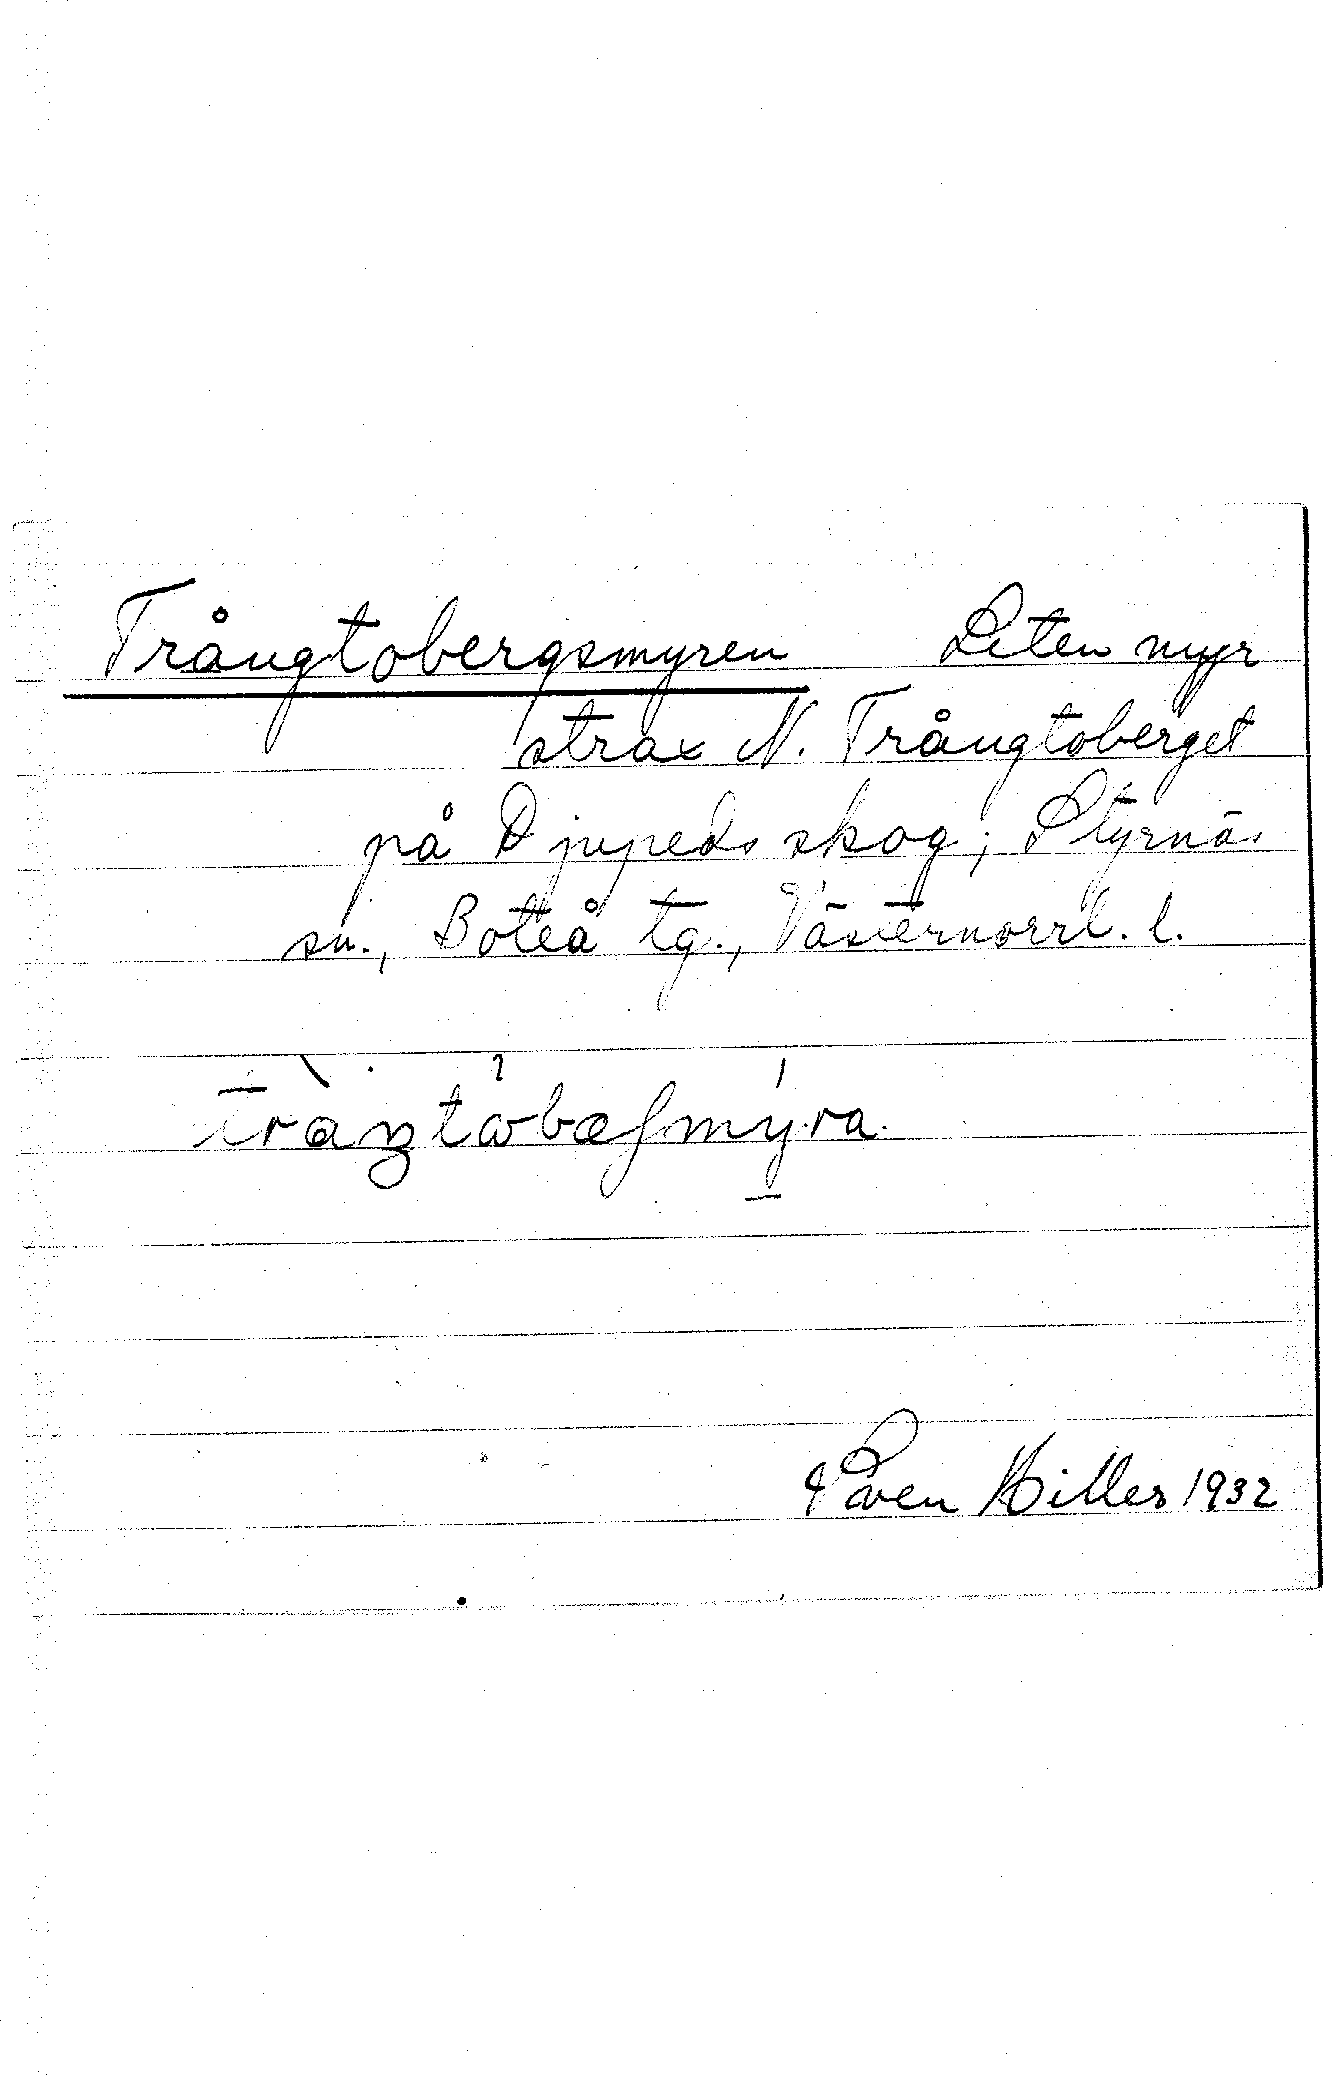 Trångtobergsmyren Liten myr
strax N. Trångtoberget
på Djupeds skog, Styrnäs
sn., Boteå tg., Västernorrl. l.
Sven Hilles 1932